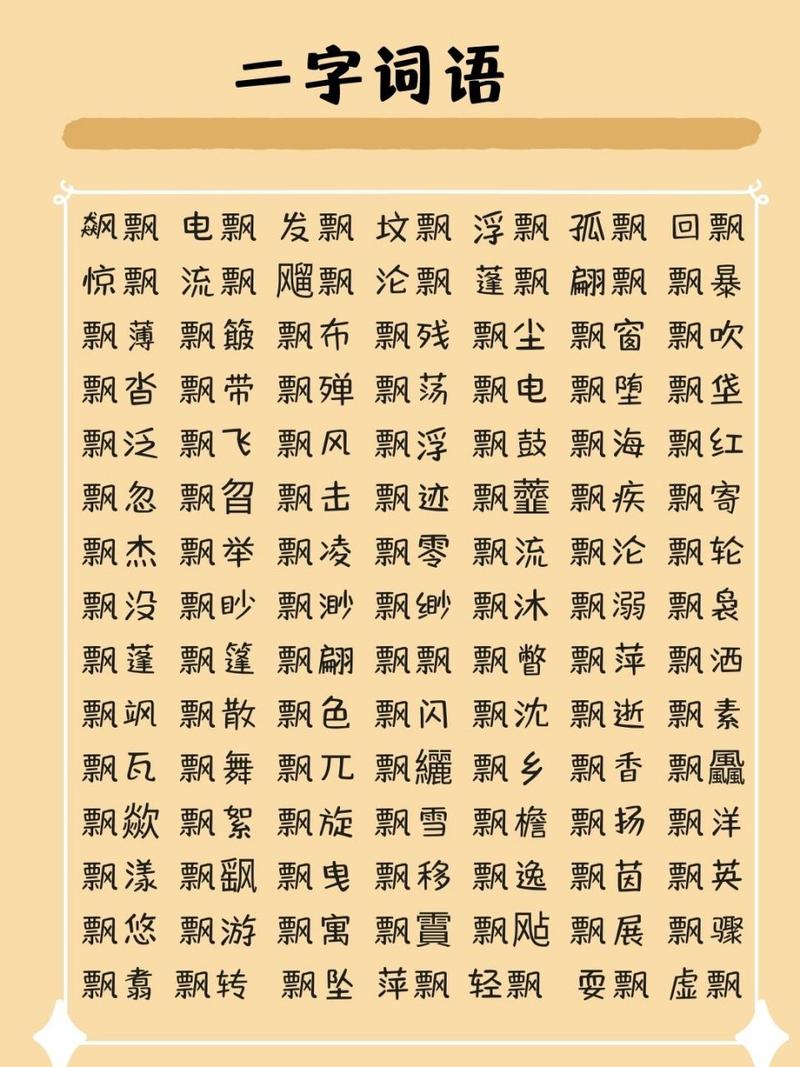 二字词语
飙飘 电飘 发飘 坟飘 浮飘 孤飘 回飘
惊飘 流飘 飗飘 沦飘 蓬飘 翩飘 飘暴
飘薄 飘簸 飘布 飘残 飘尘 飘窗 飘吹
飘沓 飘带 飘殚 飘荡 飘电 飘堕 飘垡
飘泛 飘飞 飘风 飘浮 飘鼓 飘海 飘红
飘忽 飘曶 飘击 飘迹 飘虀 飘疾 飘寄
飘杰 飘举 飘凌 飘零 飘流 飘沦 飘轮
飘没 飘眇 飘渺 飘缈 飘沐 飘溺 飘袅
飘蓬 飘篷 飘翩 飘飘 飘瞥 飘萍 飘洒
飘飒 飘散 飘色 飘闪 飘沈 飘逝 飘素
飘瓦 飘舞 飘兀 飘纚 飘乡 飘香 飘飍
飘歘 飘絮 飘旋 飘雪 飘檐 飘扬 飘洋
飘漾 飘飖 飘曳 飘移 飘逸 飘茵 飘英
飘悠 飘游 飘寓 飘霣 飘飐 飘展 飘骤
飘翥 飘转 飘坠 萍飘 轻飘 耍飘 虚飘